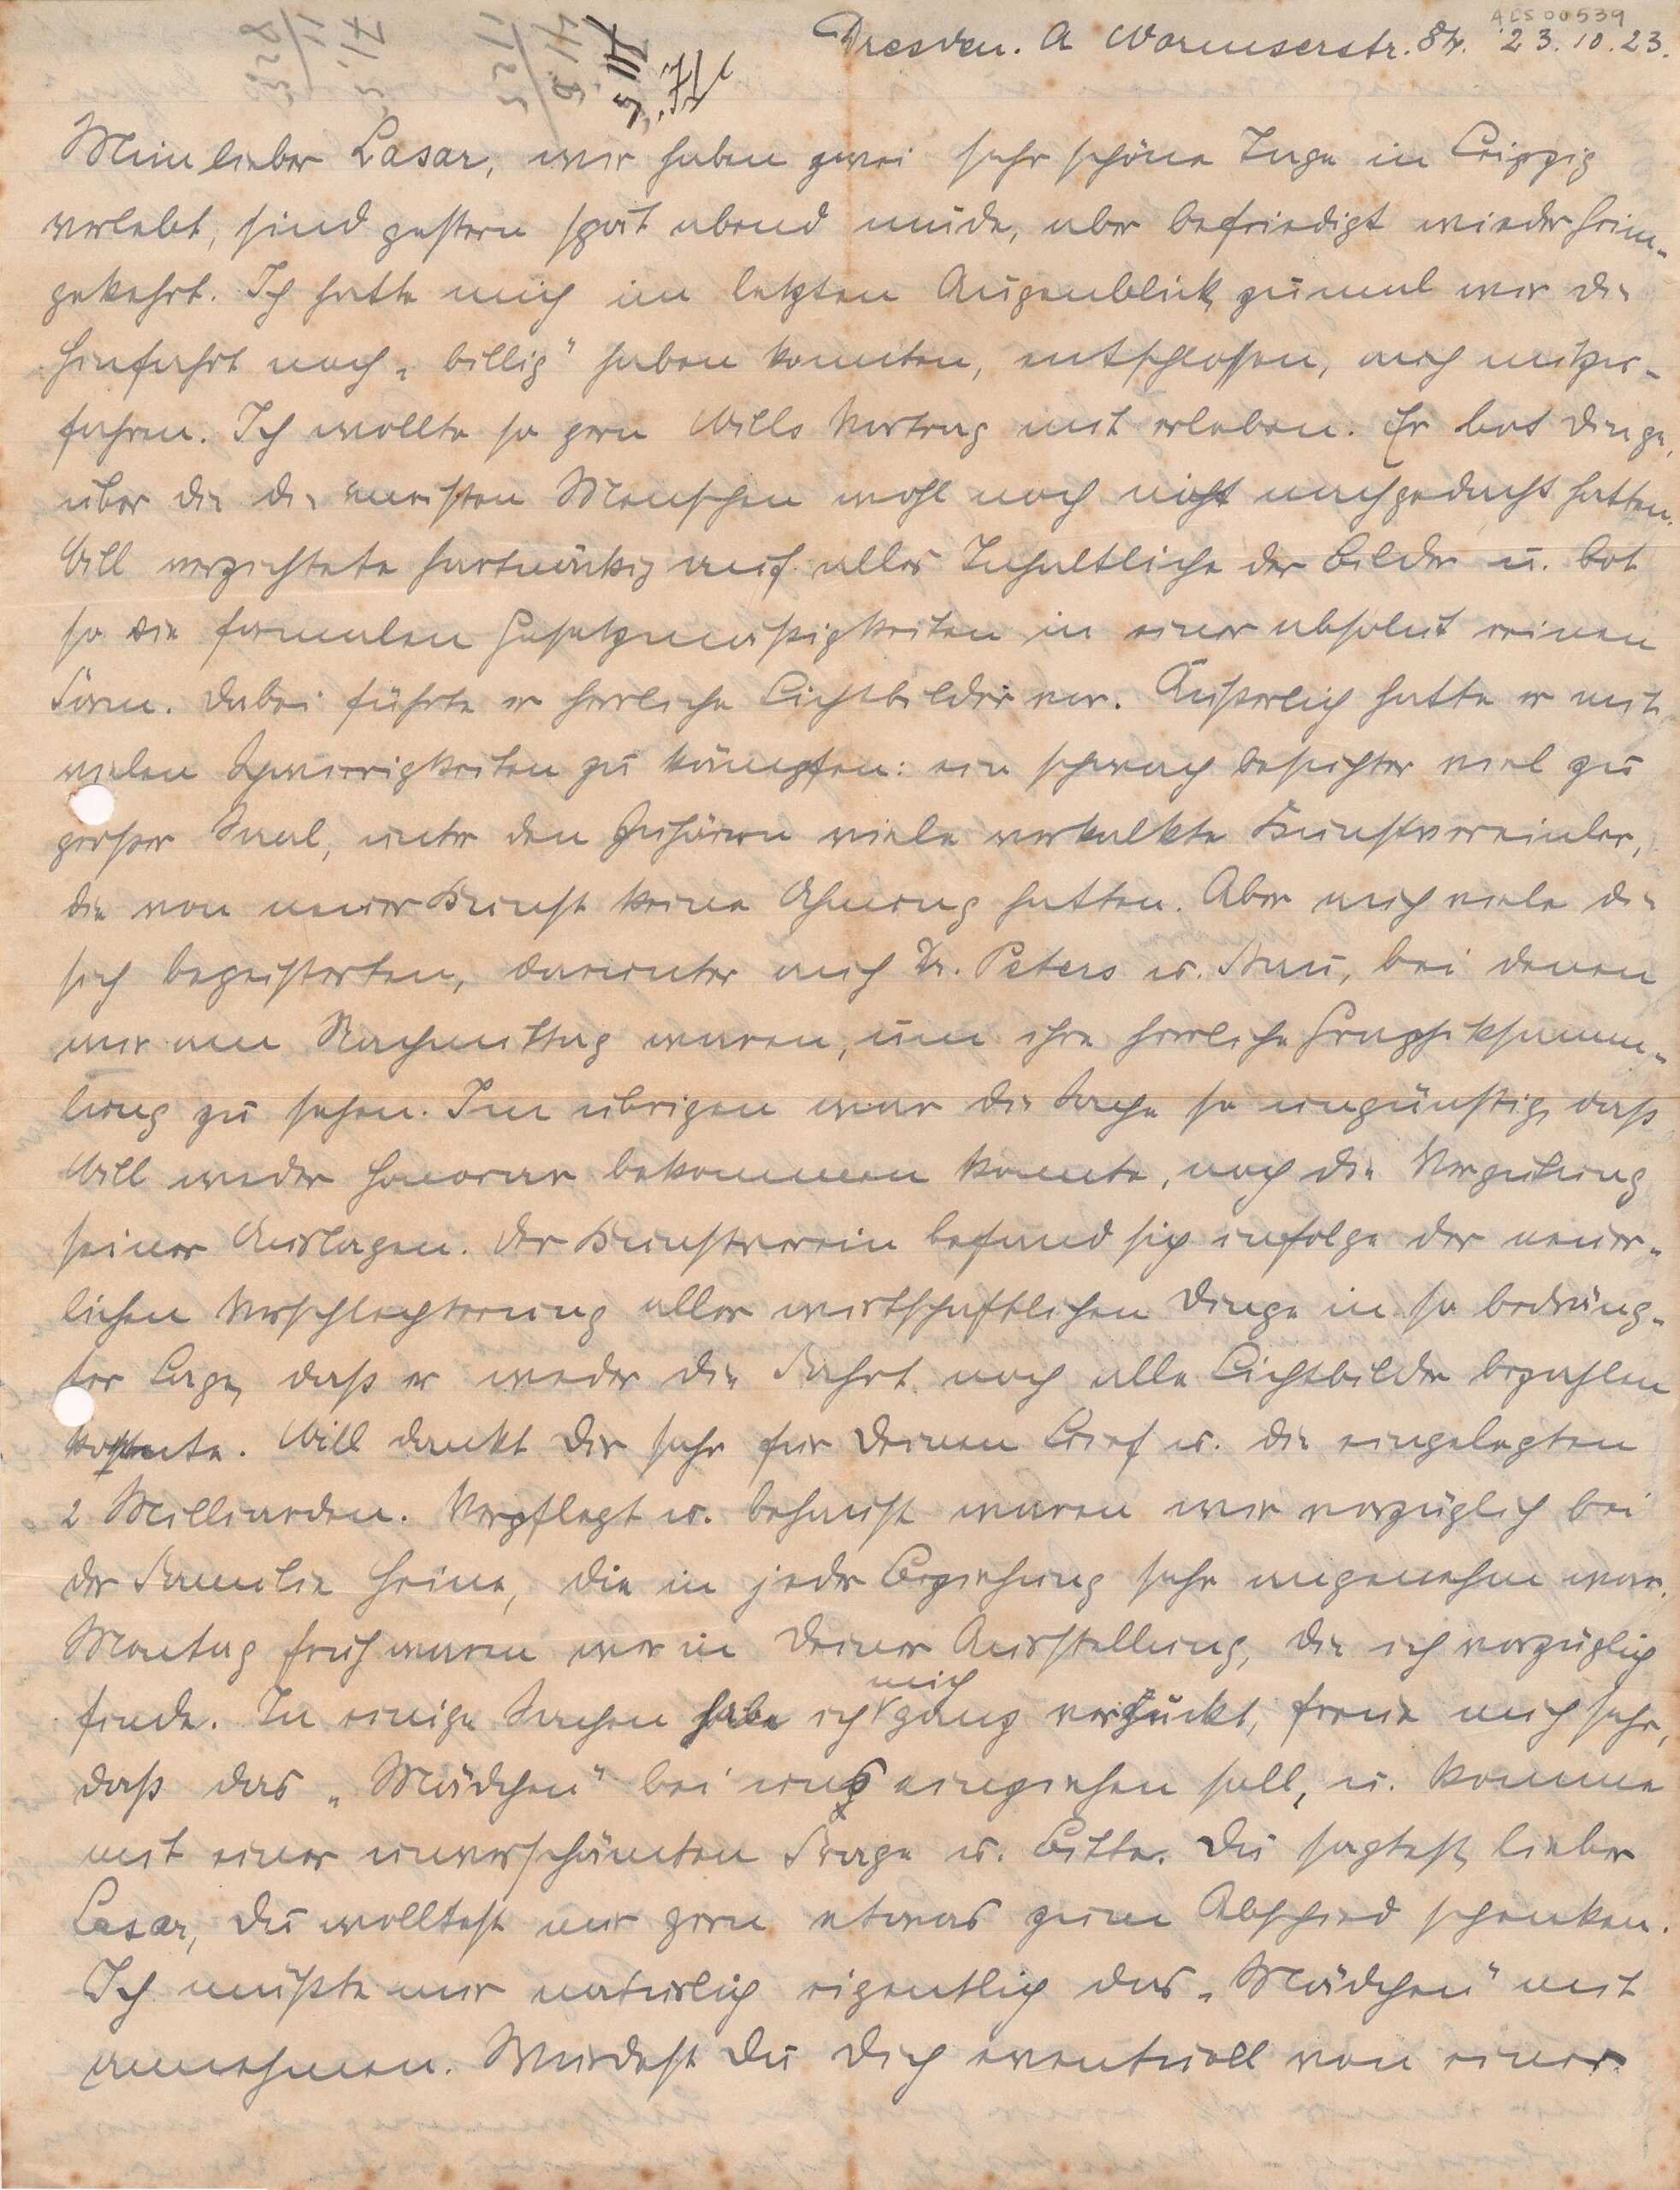 ALS 00539
Dresden. A Wormserstr. 84. 23.10.23.
Mein lieber Lasar, wir haben zwei sehr schöne Tage in Leipzig
verlebt, sind gestern spät abend müde, aber befriedigt wieder heim-
gekehrt. Ich hatte mich im letzten Augenblick, zumal wir die
Hinfahrt noch „billig" haben konnten, entschlossen, auch mitzu-
fahren. Ich wollte so gern Wills Vortrag mit erleben. Er bot Dinge,
über die die meisten Menschen wohl noch nicht nachgedacht hatten.
Will verzichtete hartnäckig auf alles Inhaltliche der Bilder u. bot
so die formalen Gesetzmäßigkeiten in einer absolut reinen
Form. Dabei führte er herrliche Lichtbilder vor. Äußerlich hatte er mit
vielen Schwierigkeiten zu kämpfen: ein schwach besuchter viel zu
großer Saal, unter den Zuhörern viele verkalkte Kunstvereinler,
die von neuer Kunst keine Ahnung hatten. Aber auch viele die
sich begeisterten, darunter auch Dr. Peters u. Frau, bei denen
wir am Nachmittag waren, um ihre herrliche Graphiksamm-
lung zu sehen. Im übrigen war die Sache so ungünstig, daß
Will weder Honorar bekommen konnte, noch die Vergütung
seiner Auslagen. Der Kunstverein befand sich infolge der neuer-
lichen Verschlechterung aller wirtschaftlichen Dinge in so bedräng-
ter Lage, daß er weder die Fahrt noch alle Lichtbilder bezahlen
konnte. Will dankt Dir sehr für Deinen Brief u. die eingelegten
2 Milliarden. Verpflegt u. behaust waren wir vorzüglich bei
der Familie Heine, die in jeder Beziehung sehr angenehm war.
Montag früh waren wir in Deiner Ausstellung, die ich vorzüglich
finde. In einige Sachen habe ich mich ganz verguckt, freue mich sehr,
daß das „Mädchen" bei uns einziehen soll, u. komme
mit einer unverschämten Frage u. Bitte. Du sagtest, lieber
Lasar, Du wolltest mir gern etwas zum Abschied schenken.
Ich müßte mir natürlich eigentlich das „Mädchen" mit
annehmen. Würdest Du Dich eventuell von einer